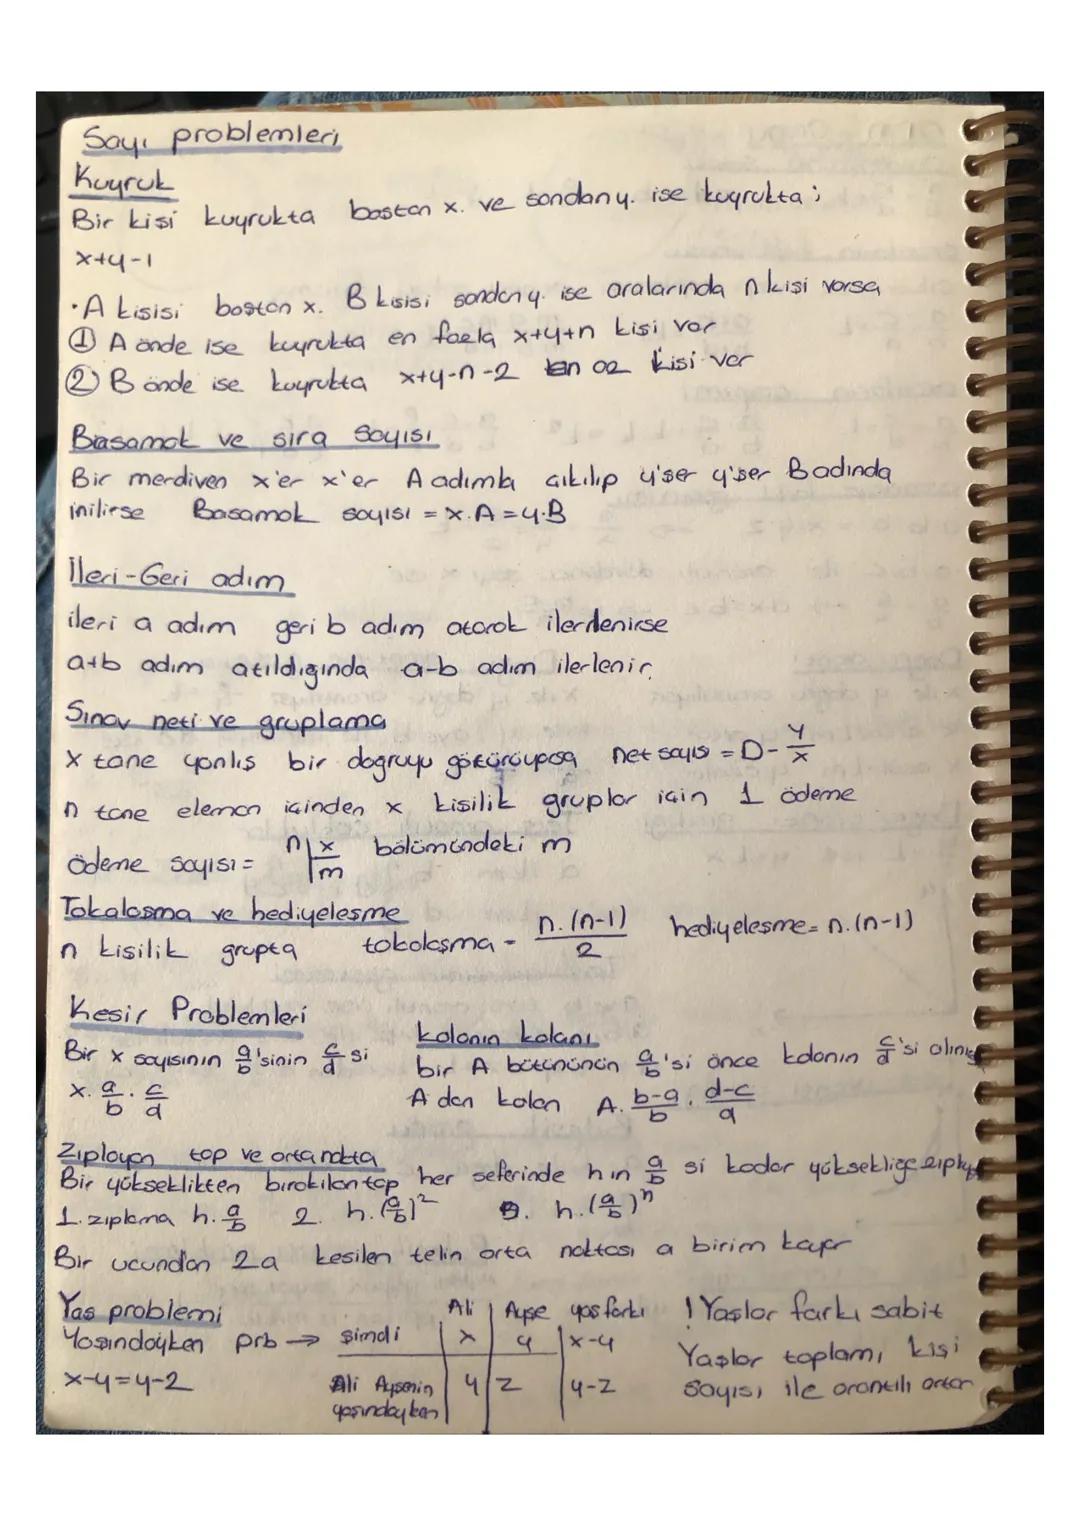 Sayı problemleri
Kuyruk
Bir kişi kuyrukta baştan x. ve sondan y. ise kuyrukta;
x+y-1
• A kişisi baştan x. B kişisi sondan y. ise aralarında n kişi varsa
① A önde ise kuyrukta en fazla x+y+n kişi var
② B önde ise kuyrukta x+y-n-2 en az kişi var
Basamak ve sıra sayısı
Bir merdiven x'er x'er A adımla çıkılıp y'şer y'şer B adında
inilirse Basamak sayısı = x.A = y.B
İleri-Geri adım
ileri a adım geri b adım atarak ilerlenirse
a+b adım atıldığında a-b adım ilerlenir.
Sınav neti ve gruplama
x tane yanlış bir doğruyu götürüyorsa net sayısı = D - Y/x
n tane eleman içinden x kişilik gruplar için 1 ödeme
ödeme sayısı = n | x / m bölümündeki m
Tokalaşma ve hediyeleşme
n kişilik grupta tokalaşma = n.(n-1)/2 hediyeleşme = n.(n-1)
Kesir Problemleri
Bir x sayısının a/b'sinin c/d si
x. a/b . c/d
kalanın kalanı
bir A bütününün a/b'si önce kalanın c/d'si alınış
A dan kalan A. b-a/b . d-c/d
Zıplayan top ve orta nokta
Bir yükseklikten bırakılan top her seferinde h ın a/b si kadar yüksekliğe zıplıyo
1. zıplama h. a/b 2. h.(a/b)² n. h.(a/b)ⁿ
Bir ucundan 2a kesilen telin orta noktası a birim kayar
Yaş problemi
Yaşındayken prb → şimdi
Ali Ayşe yaş farkı
x y x-y
x-y=y-z
Ali Ayşenin yaşındayken y z y-z
! Yaşlar farkı sabit
Yaşlar toplamı kişi
sayısı ile orantılı artar